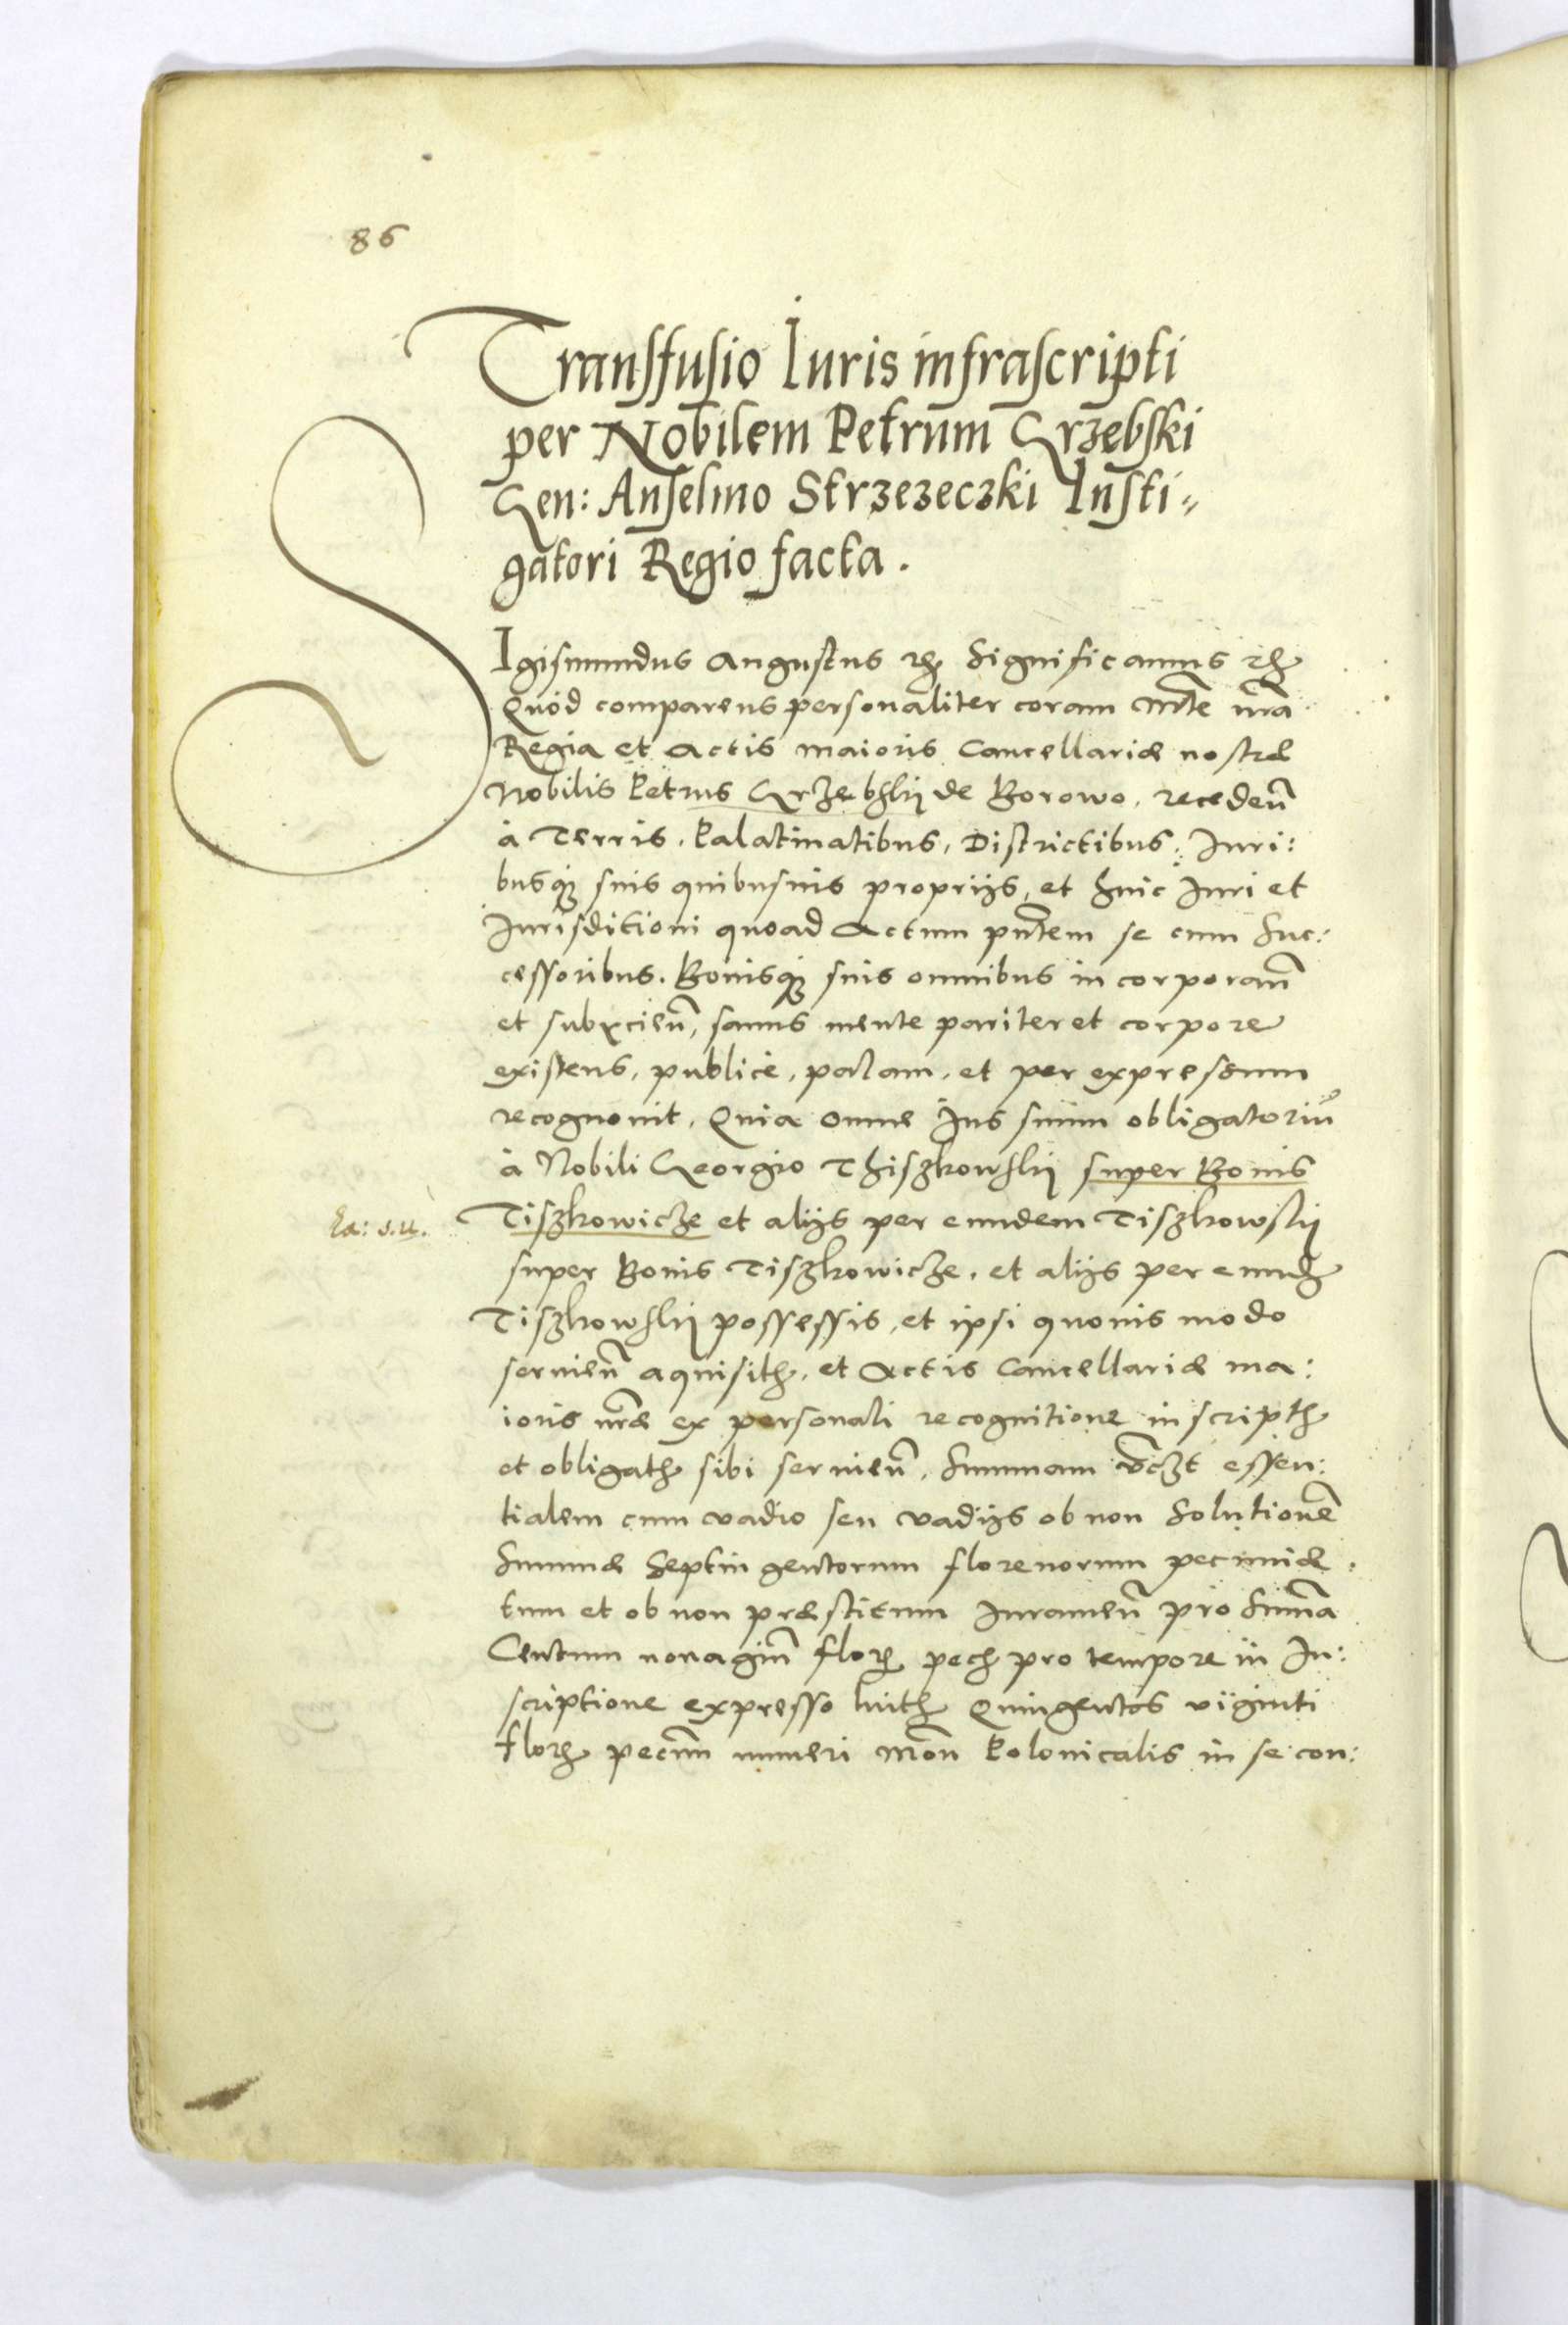 86
Transfusio Iuris infrascripti
per Nobilem Petrum Grzebski
Gen: Anselmo Strzezeczki Insti„
gatori Regio facta.
SIgismundus Augustus etc Significamus etc
Quòd comparens personaliter coram Mte nra
Regia et Actis maioris Cancellariæ nostræ
Nobilis Petrus Grzebskij de Borowo, recedeñ
à Terris, Palatinatibus, Districtibus, Iuri:
busq; suis quibusuis proprijs, et huic Iuri et
Iurisditioni quoad Actum pntem se cum Suc:
cessoribus, Bonisq; suis omnibus incorporañ
et subijcieñ, sanus mente pariter et corpore
existens, publicè, palam, et per expressum
recognouit, Quia omne Ius suum obligatoriũ
à Nobili Georgio Thiszkowskij super Bonis
Tiszkowicze et alijs per eundem Tiszkowskij
super Bonis Tiszkowicze, et alijs per eund
Tiszkowskij possessis, et ipsi quouis modo
seruieñ aquisit, et Actis Cancellariæ ma:
ioris nræ ex personali recognitione inscript
et obligat sibi seruieñ, Summam essen:
tialem cum vadio seu vadijs ob non Solutionẽ
Summæ Septingentorum florenorum pecuniæ
tum et ob non præstitum Iurameñ pro Sum̃a
Centum nonagiñ flor pec pro tempore in In:
scriptione expresso Quingentos viginti
flor pecun numeri Moñ Polonicalis in se con: